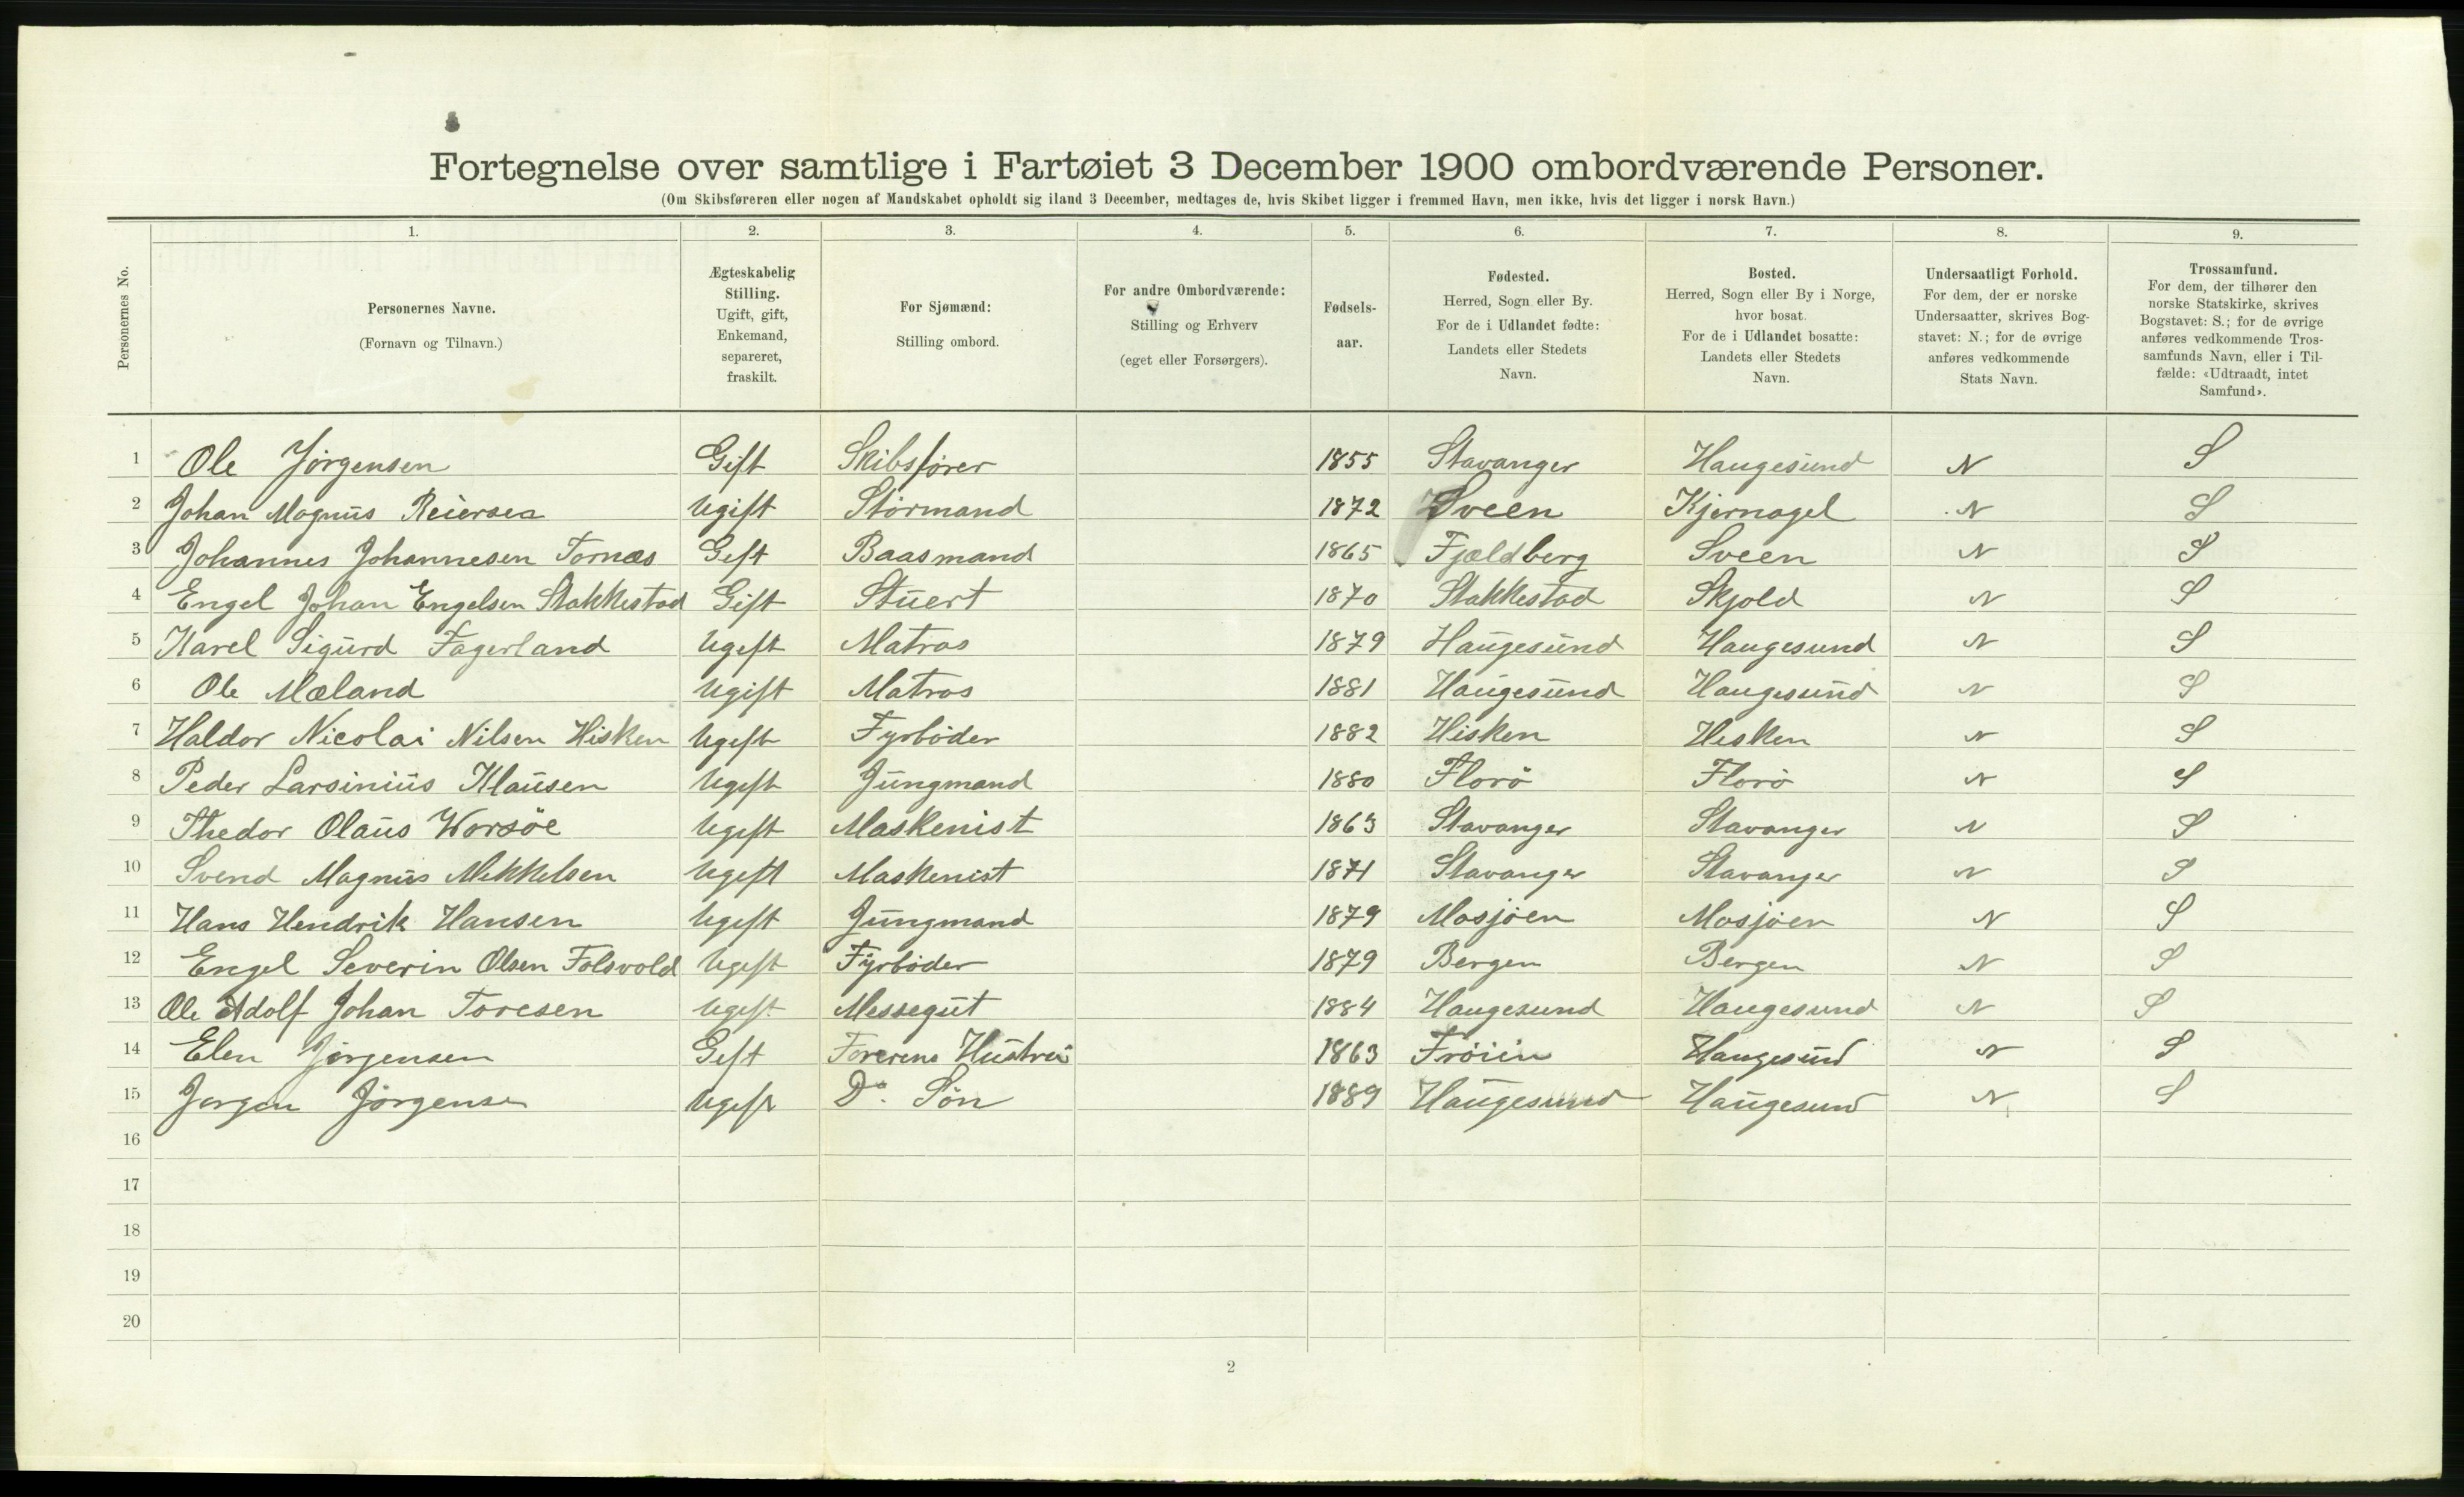 Fortegnelse over samtlige i Fartøiet 3 December 1900 ombordværende Personer.
(Om Skibsføreren eller nogen af Mandskabet opholdt sig iland 3 December, medtages de, hvis Skibet ligger i fremmed Havn, men ikke, hvis det ligger i norsk Havn.)
Personernes No.
1.
Personernes Navne.
(Fornavn og Tilnavn.)
2.
Ægteskabelig
Stilling.
Ugift, gift,
Enkemand,
separeret,
fraskilt.
3.
For Sjømænd:
Stilling ombord.
4.
For andre Ombordværende:
Stilling og Erhverv
(eget eller Forsørgers).
5.
Fødsels-
aar.
6.
Fødested.
Herred, Sogn eller By.
For de i Udlandet fødte:
Landets eller Stedets
Navn.
7.
Bosted.
Herred, Sogn eller By i Norge,
hvor bosat.
For de i Udlandet bosatte:
Landets eller Stedets
Navn.
8.
Undersaatligt Forhold.
For dem, der er norske
Undersaatter, skrives Bog-
stavet: N.; for de øvrige
anføres vedkommende
Stats Navn.
9.
Trossamfund.
For dem, der tilhører den
norske Statskirke, skrives
Bogstavet: S.; for de øvrige
anføres vedkommende Tros-
samfunds Navn, eller i Til-
fælde: «Udtraadt, intet
Samfund».
1 Ole Jörgensen Gift Skibsförer 1855 Stavanger Haugesund N S
2 Johan Magnus Reiersen Ugift Störmand 1872 Sveen Kjernagel N S
3 Johannes Johannesen Tornæs Gift Baasmand 1865 Fjældberg Sveen N S
4 Engel Johan Engelsen Stakkestad Gift Stuert 1870 Stakkestad Skjold N S
5 Karel Sigurd Fagerland Ugift Matros 1879 Haugesund Haugesund N S
6 Ole Mæland Ugift Matros 1881 Haugesund Haugesund N S
7 Haldor Nicolai Nilsen Hisken Ugift Fyrböder 1882 Hisken Hisken N S
8 Peder Larsinius Klausen Ugift Jungmand 1880 Florö Florö N S
9 Thedor Olaus Worsöe Ugift Maskenist 1863 Stavanger Stavanger N S
10 Svend Magnus Mikkelsen Ugift Maskenist 1871 Stavanger Stavanger N S
11 Hans Hendrik Hansen Ugift Jungmand 1879 Mosjöen Mosjöen N S
12 Engel Severin Olsen Folsvold Ugift Fyrböder 1879 Bergen Bergen N S
13 Ole Adolf Johan Toresen Ugift Messegut 1884 Haugesund Haugesund N S
14 Elen Jörgensen Gift Förerens Hustru 1863 Haugesund N S
15 Jørgen Jörgensen Ugift Do. Sön 1889 Haugesund Haugesund N S
16
17
18
19
20
2